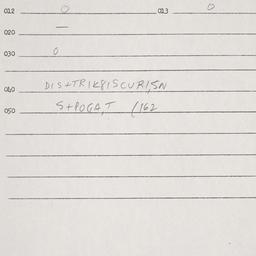 012 0 013 0
020 —
030 0
040 DISTTRIK8ISCURI,SN
050 S+POGA,T (162